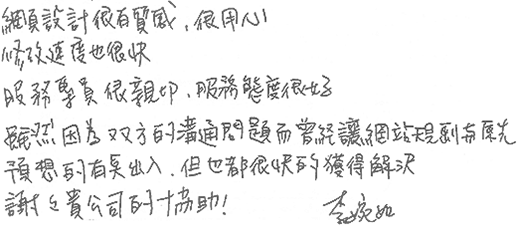 網頁設計很有質感、很用心
修改速度也很快
服務專員很親切、服務態度很好
雖然因為双方的溝通問題而曾經讓網站規劃與原先
預想的有點出入，但也都很快的獲得解決
謝々貴公司的協助!
李婉如